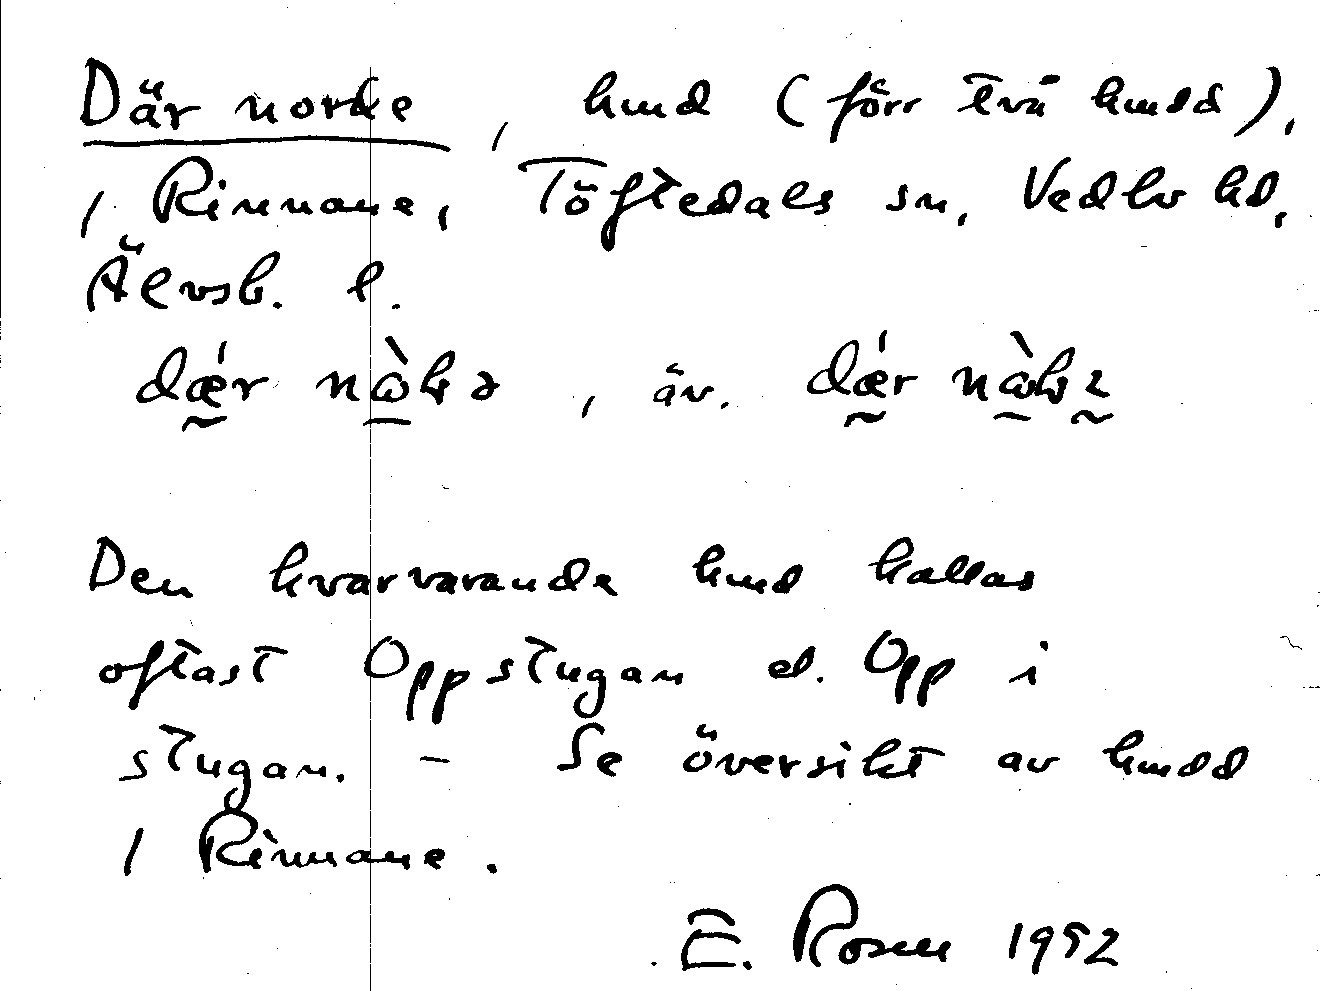 Där norde, hmd (förr två hmdd),
i Rinnane, Töftedals sn, Vedbo hd,
Älvsb. l.
dǽr nὼḷə, äv. dǽr nὼḷ
Den kvarvarande hmd kallas
oftast Oppstugan el. Opp i
stugan. – Se översikt av hmdd
i Rinnane.
E. Rosen 1952